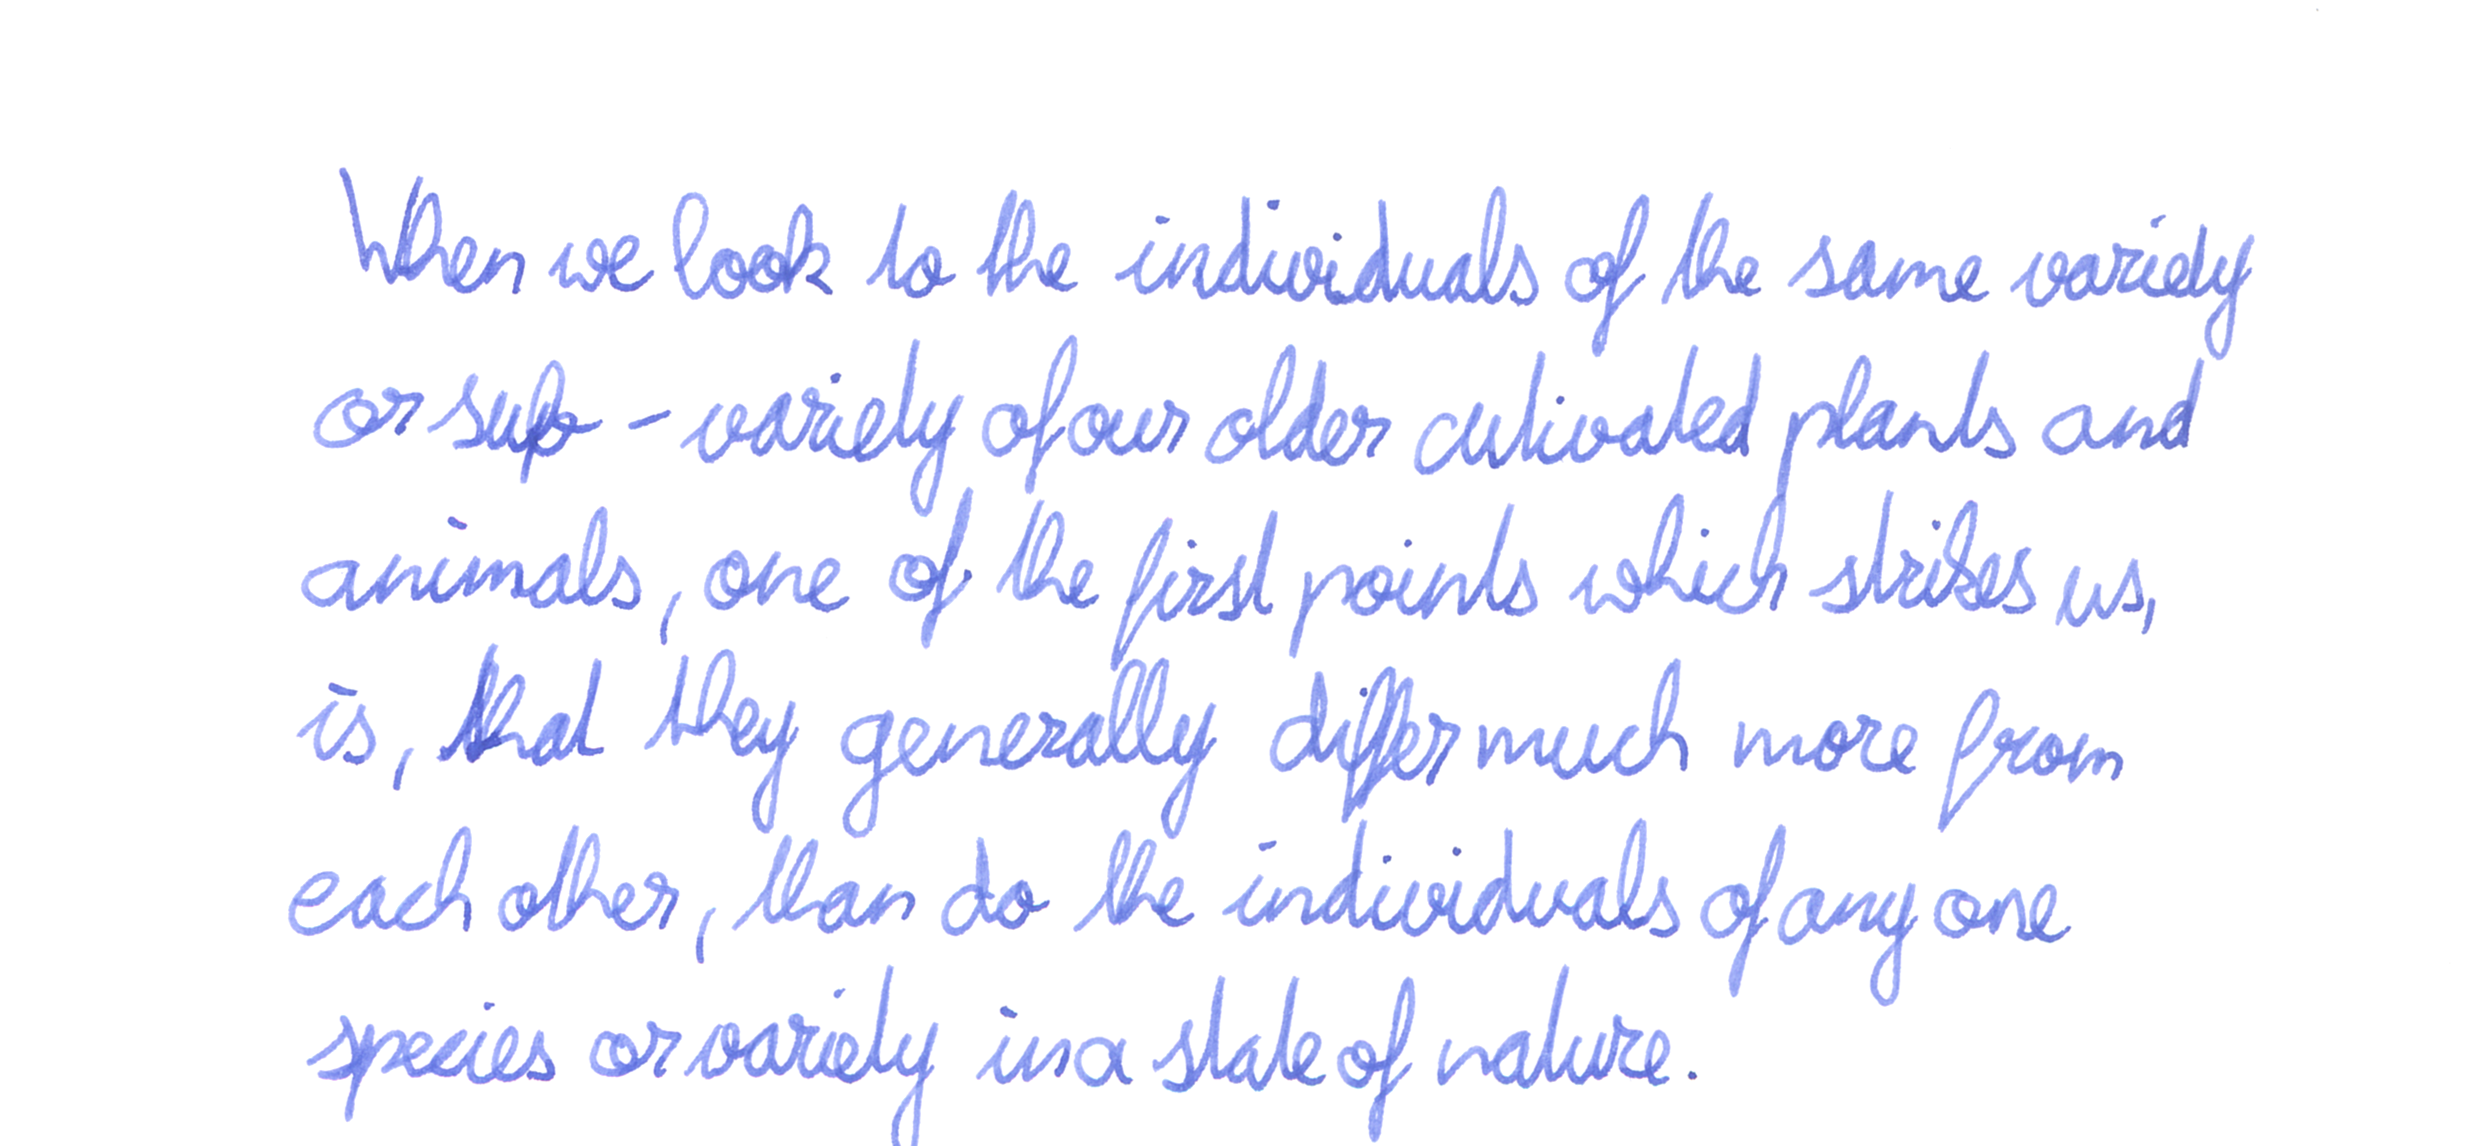 When we look to the individuals of the same variety
or sub-variety of our older cultivated plants and
animals, one of the first points which strikes us,
is, that they generally differ much more from
each other, than do the individuals of any one
species or variety in a state of nature.